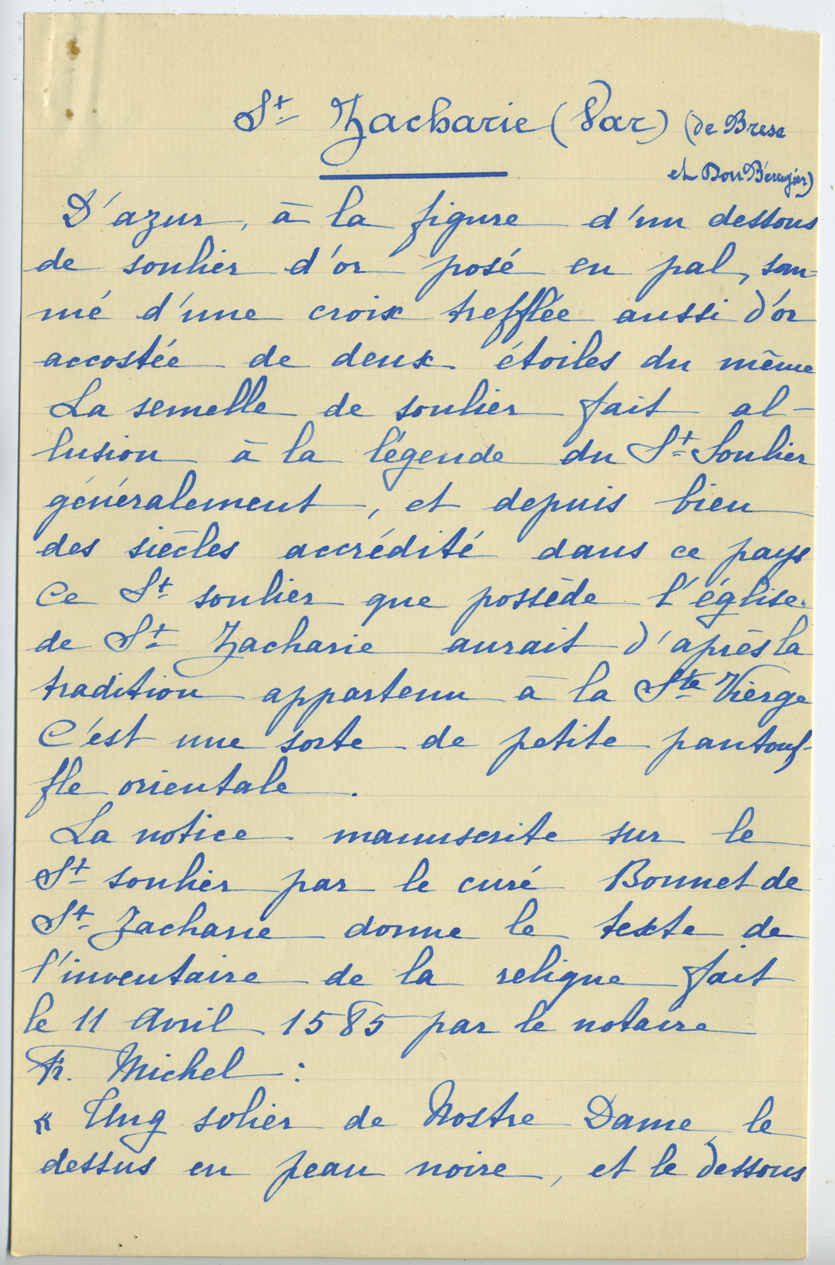 St Zacharie (Var) (de Bresc
et Don Bérugier)
D'azur, à la figure d'un dessous
de soulier d'or posé en pal, som-
mé d'une croix trefflée aussi d'or
accostée de deux étoiles du même
La semelle de soulier fait al-
lusion à la légende du St Soulier
généralement, et depuis bien
des siècles accrédité dans ce pays
Ce St soulier que possède l'église
de St Zacharie aurait d'après la
tradition appartenu à la Ste Vierge
C'est une sorte de petite pantouf-
fle orientale.
La notice manuscrite sur le
St soulier par le curé Bonnet de
St Zacharie donne le texte de
l'inventaire de la relique fait
le 11 Avril 1585 par le notaire
Fr. Michel :
« Ung solier de Nostre Dame, le
dessus en peau noire, et le dessous